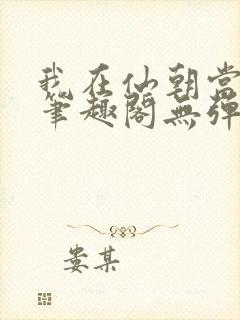 我在仙朝当
笔趣阁無弹
娄某